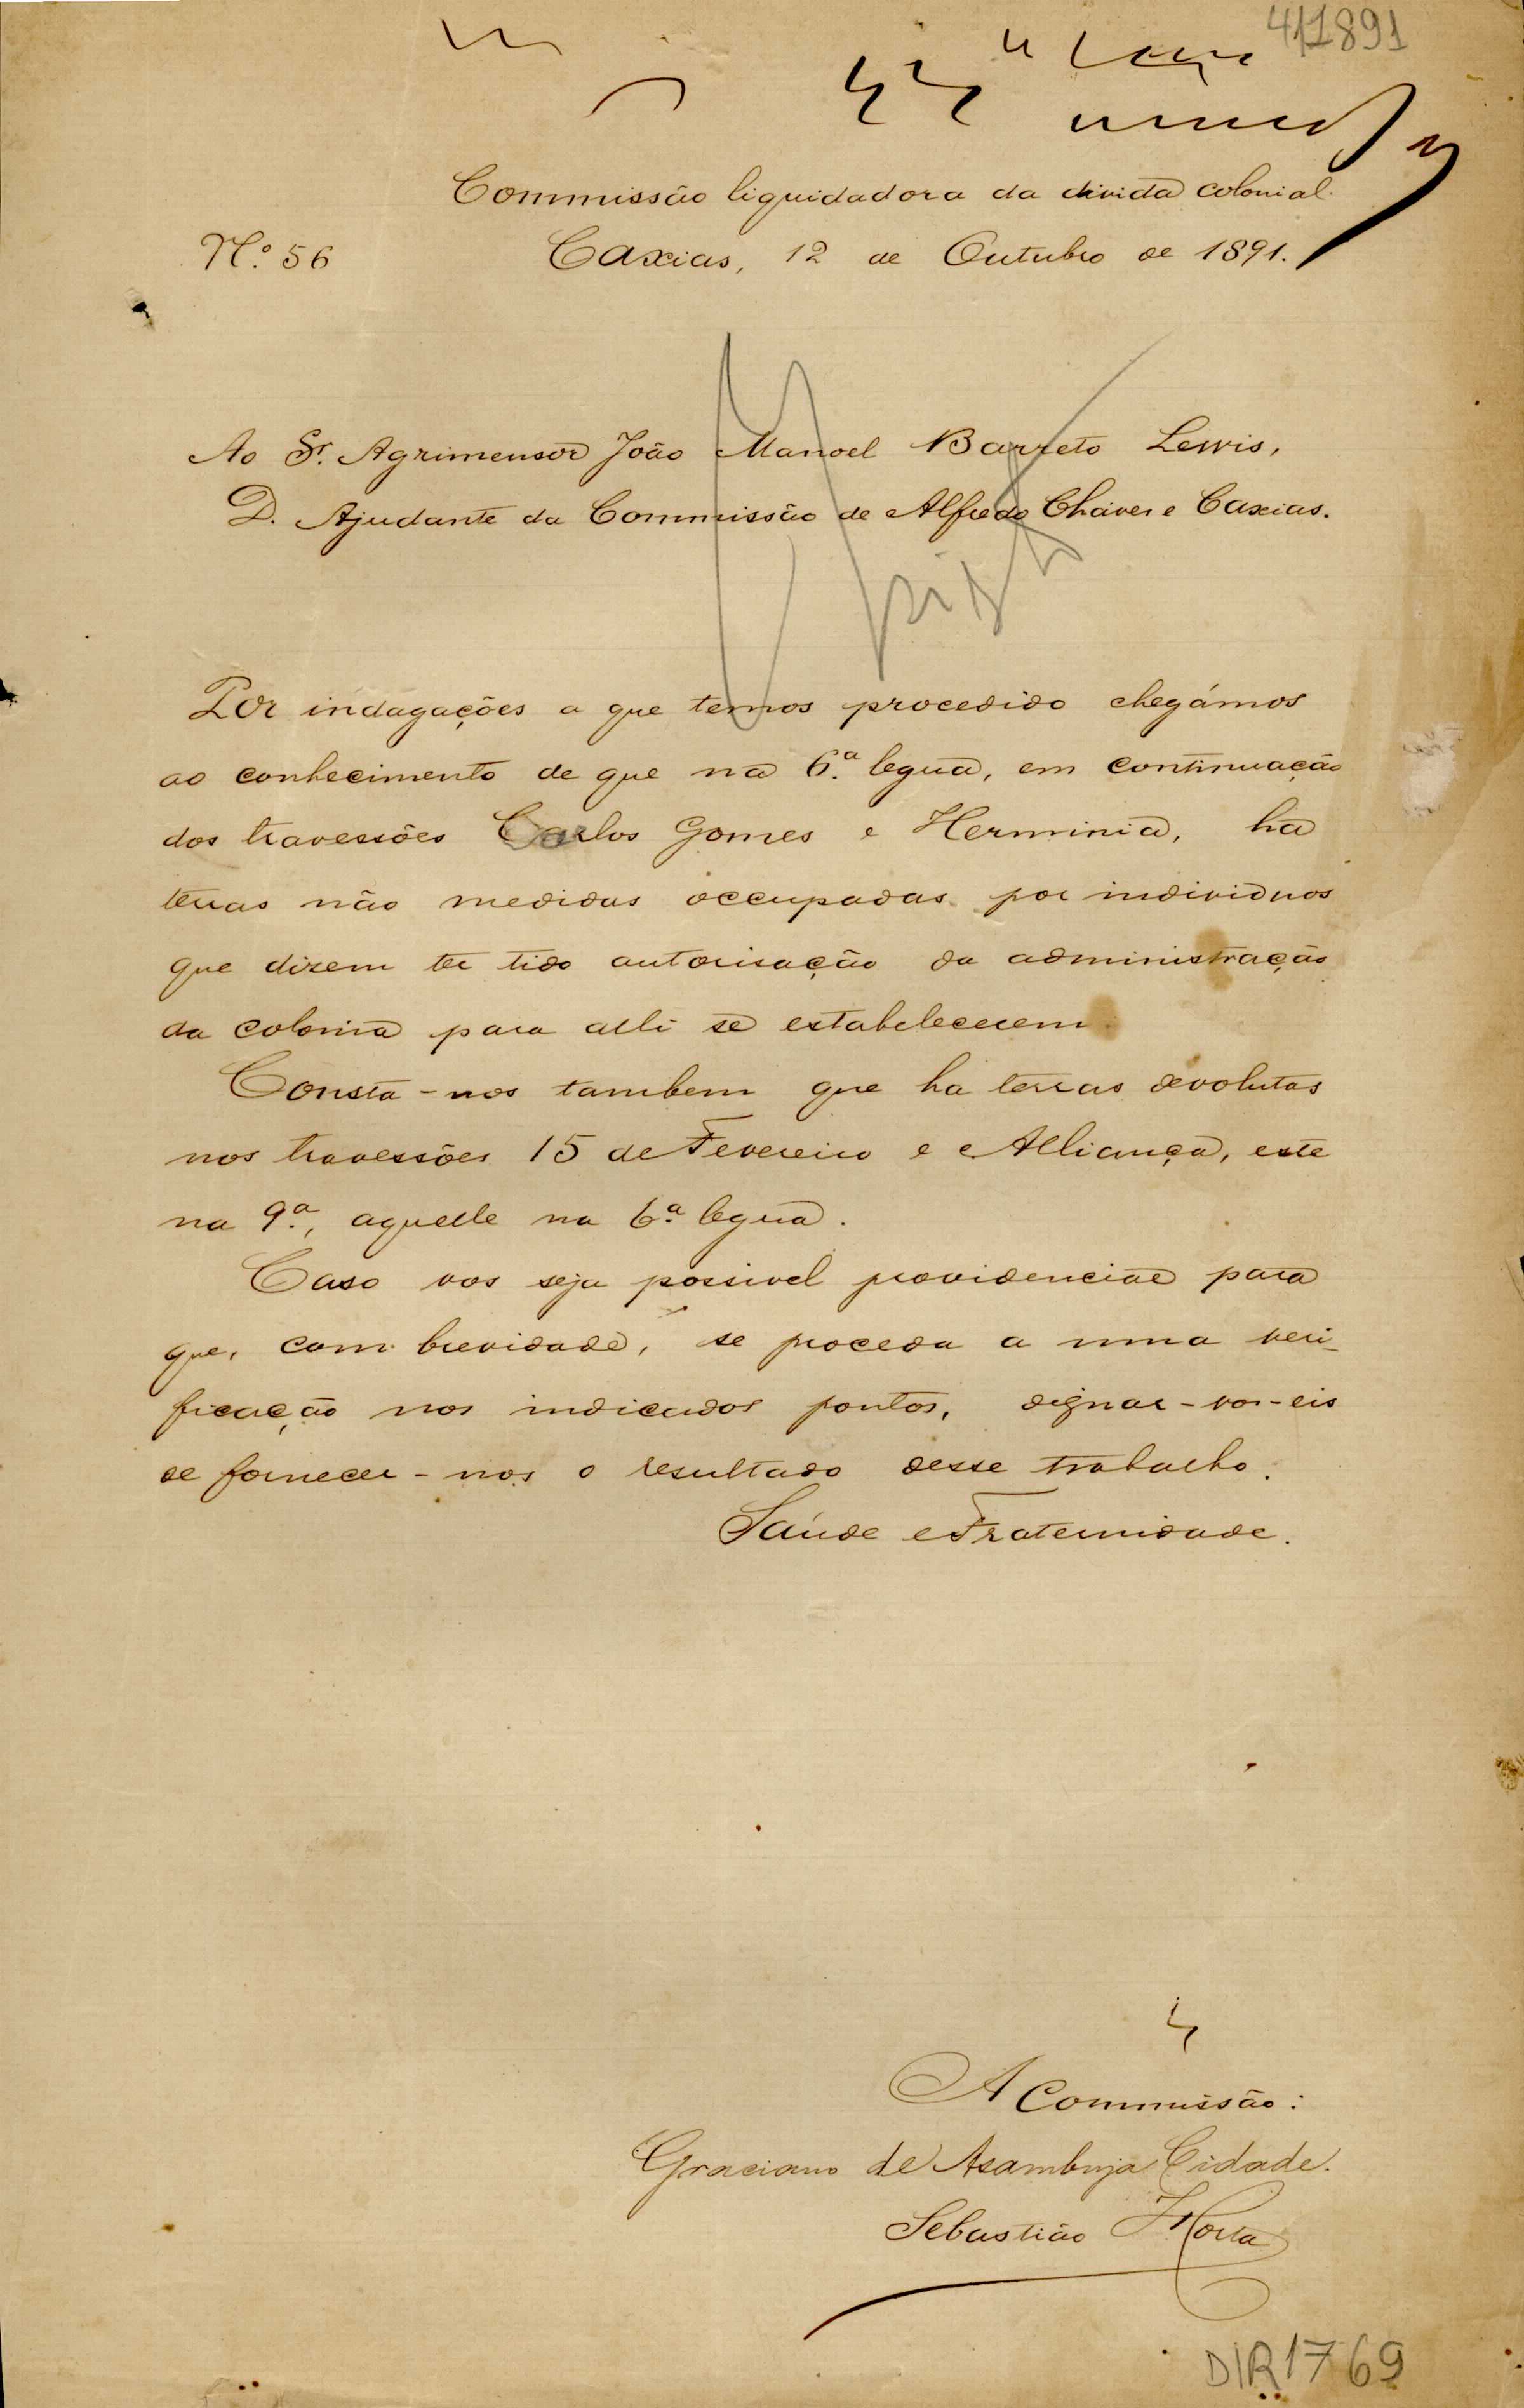 4/1891
Commissão liquidadora da divida colonial.
Nº. 56
Caxias, 12 de Outubro de 1891.
Ao Sr. Agrimensor João Manoel Barreto Lewis,
D. Ajudante da Commissão de Alfredo Chaves e Caxias.
Por indagações a que temos procedido chegámos
ao conhecimento de que na 6.ª legua, em continuação
dos travessões Carlos Gomes e Herminia, ha
terras não medidas occupadas por individuos
que dizem ter tido autorisação da administração
da colonia para alli se estabelecerem.
Consta-nos tambem que ha terras devolutas
nos travessões 15 de Fevereiro e Alliança, este
na 9.ª, aquelle na 6.ª legua.
Caso vos seja possivel providenciae para
que, com brevidade, se proceda a uma veri-
ficação nos indicados pontos, dignar-vos-eis
de fornecer-nos o resultado desse trabalho.
Saúde e Fraternidade.
A Commissão:
Graciano de Azambuja Cidade.
Sebastião Horta
DIR 1769